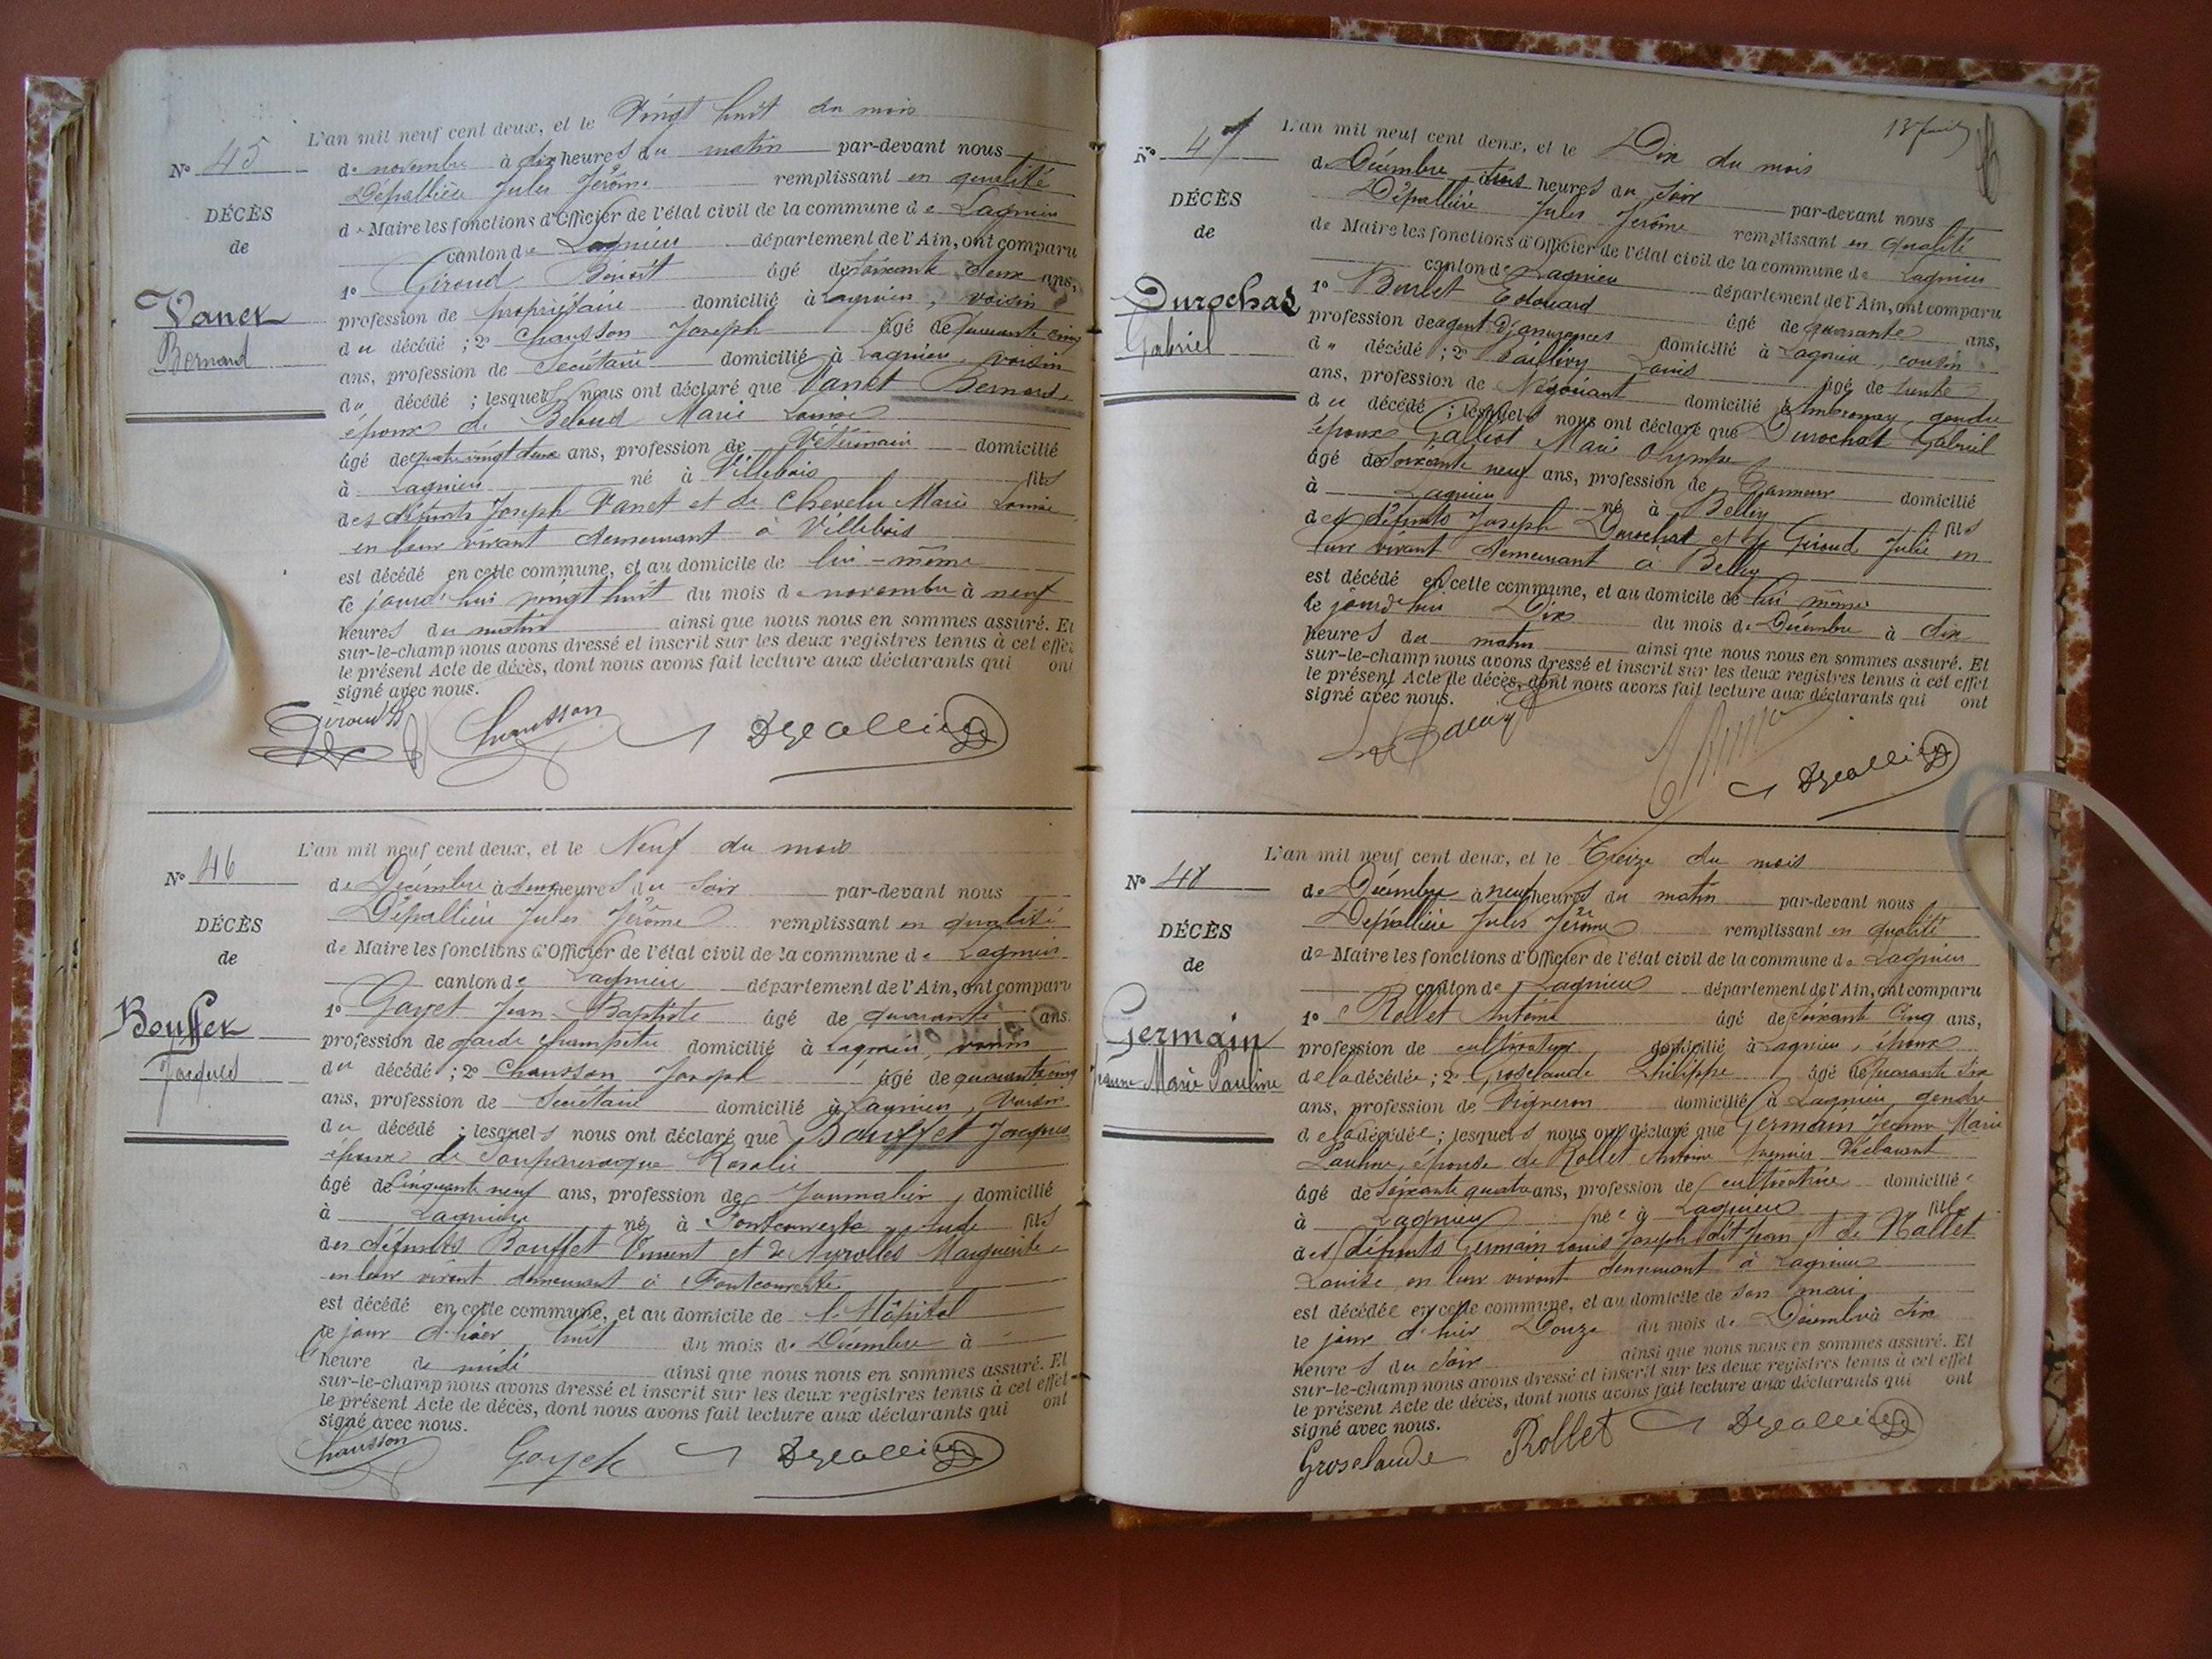 N° 45
DÉCÈS
de
Vanet
Bernard
L'an mil neuf cent deux, et le Vingt huit du mois
de novembre à dix heures du matin par-devant nous
Dépallière Jules Jérôme remplissant en qualité
de Maire les fonctions d'Officier de l'état civil de la commune de Lagnieu
canton de Lagnieu département de l'Ain, ont comparu
1° Giroud Benoit âgé de soixante deux ans,
profession de propriétaire domicilié à Lagnieu, voisin
du décédé ; 2° Chausson Joseph âgé de quarante cinq
ans, profession de Secrétaire domicilié à Lagnieu, voisin
du décédé ; lesquels nous ont déclaré que Vanet Bernard
époux de Beloud Marie Louise
âgé de quatre vingt deux ans, profession de Vétérinaire domicilié
à Lagnieu né à Villebois fils
des défunts Joseph Vanet et de Chevelu Marie Louise
en leur vivant demeurant à Villebois
est décédé en cette commune, et au domicile de lui-même
le jourd'hui vingt huit du mois de novembre à neuf
heures du matin ainsi que nous nous en sommes assuré. Et
sur-le-champ nous avons dressé et inscrit sur les deux registres tenus à cet effet
le présent Acte de décès, dont nous avons fait lecture aux déclarants qui ont
signé avec nous.
Giroud B Chausson Dépallière
N° 46
DÉCÈS
de
Bouffet
Jacques
L'an mil neuf cent deux, et le Neuf du mois
de Décembre à deux heures du soir par-devant nous
Dépallière Jules Jérôme remplissant en qualité
de Maire les fonctions d'Officier de l'état civil de la commune de Lagnieu
canton de Lagnieu département de l'Ain, ont comparu
1° Gayet Jean-Baptiste âgé de quarante ans.
profession de garde champêtre domicilié à Lagnieu, voisin
du décédé ; 2° Chausson Joseph âgé de quarante cinq
ans, profession de Secrétaire domicilié à Lagnieu, voisin
du décédé ; lesquels nous ont déclaré que Bouffet Jacques
époux de Rosalie
âgé de Cinquante neuf ans, profession de Journalier, domicilié
à Lagnieu né à Fontcouverte fils
des défunts Bouffet Vincent et de Ayrolles Marguerite
en leur vivant demeurant à Fontcouverte
est décédé en cette commune, et au domicile de l'Hôpital
le jour d'hier huit du mois de Décembre à
l'heure de midi ainsi que nous nous en sommes assuré. Et
sur-le-champ nous avons dressé et inscrit sur les deux registres tenus à cet effet
le présent Acte de décès, dont nous avons fait lecture aux déclarants qui ont
signé avec nous.
Chausson Gayet Dépallière
N° 47
DÉCÈS
de
Durochat
Gabriel
L'an mil neuf cent deux, et le Dix du mois
de Décembre à trois heures du soir par-devant nous
Dépallière Jules Jérôme remplissant en qualité
de Maire les fonctions d'Officier de l'état civil de la commune de Lagnieu
canton de Lagnieu département de l'Ain, ont comparu
1° Burlet Edouard âgé de quarante ans,
profession de agent d'assurances domicilié à Lagnieu, cousin
du décédé ; 2° Louis âgé de trente
ans, profession de Négociant domicilié à Ambronay, gendre
du décédé ; lesquels nous ont déclaré que Durochat Gabriel
époux Galliot Marie Olympe
âgé de soixante neuf ans, profession de Tanneur domicilié
à Lagnieu né à Belley fils
des défunts Joseph Durochat et de Giroud Julie en
leur vivant demeurant à Belley
est décédé en cette commune, et au domicile de lui même
le jourd'hui Dix du mois de Décembre à dix
heures du matin ainsi que nous nous en sommes assuré. Et
sur-le-champ nous avons dressé et inscrit sur les deux registres tenus à cet effet
le présent Acte de décès, dont nous avons fait lecture aux déclarants qui ont
signé avec nous.
Dépallière
N° 48
DÉCÈS
de
Germain
Jeanne Marie Pauline
L'an mil neuf cent deux, et le Treize du mois
de Décembre à neuf heures du matin par-devant nous
Dépallière Jules Jérôme remplissant en qualité
de Maire les fonctions d'Officier de l'état civil de la commune de Lagnieu
canton de Lagnieu département de l'Ain, ont comparu
1° Rollet Antoine âgé de soixante cinq ans,
profession de cultivateur domicilié à Lagnieu, époux
de la décédée ; 2° Groselaude Philippe âgé de quarante six
ans, profession de Vigneron domicilié à Lagnieu, gendre
de la décédée ; lesquels nous ont déclaré que Germain Jeanne Marie
Pauline, épouse de Rollet Antoine premier déclarant
âgé de soixante quatre ans, profession de cultivatrice domiciliée
à Lagnieu née à Lagnieu fille
des défunts Germain Louis Joseph dit Jean et de Rollet
Louise en leur vivant demeurant à Lagnieu
est décédée en cette commune, et au domicile de son mari
le jour d'hier Douze du mois de Décembre à six
heures du soir ainsi que nous nous en sommes assuré. Et
sur-le-champ nous avons dressé et inscrit sur les deux registres tenus à cet effet
le présent Acte de décès, dont nous avons fait lecture aux déclarants qui ont
signé avec nous.
Groselaude Rollet Dépallière